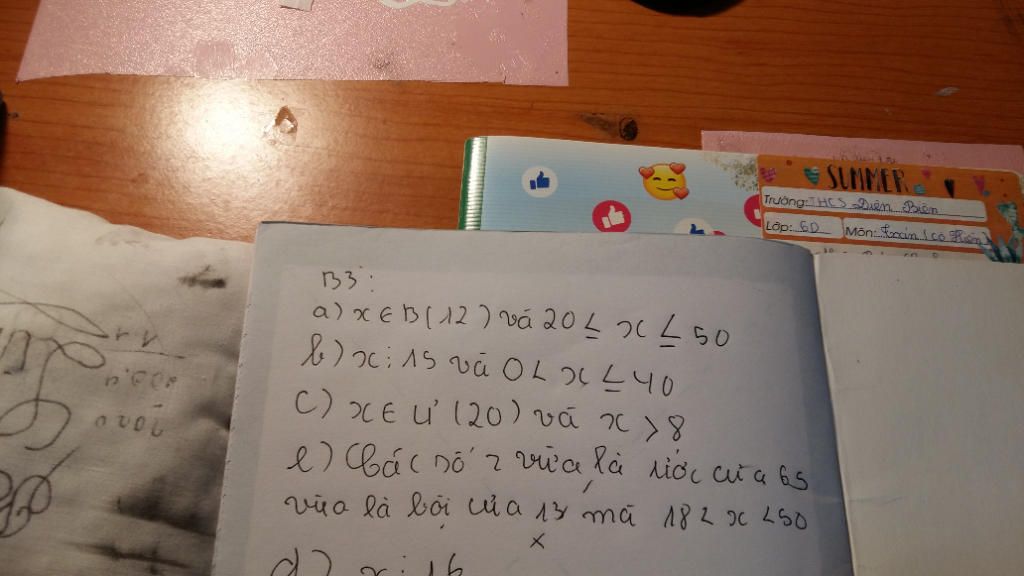 SUMMER
Trường: THCS Điện Biên
Lớp: 6D Môn: Toán (cô Hiền)
B3:
a) x ∈ B(12) và 20 ≤ x ≤ 50
b) x ⋮ 15 và 0 < x ≤ 40
c) x ∈ Ư(20) và x > 8
e) Các số vừa là ước của 65
vừa là bội của 13 mà 18 < x < 50
x
d) x ⋮ 16